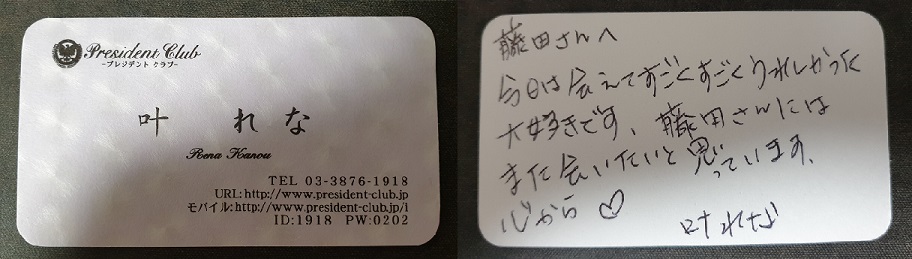 President Club
-プレジデント クラブ-
叶 れな
Rena Kanou
TEL 03-3876-1918
URL:http://www.president-club.jp
モバイル:http://www.president-club.jp/i
ID:1918 PW:0202
藤田さんへ
今日は会えてすごくすごくうれしかった
大好きです、藤田さんには
また会いたいと思っています、
心から♡
叶れな